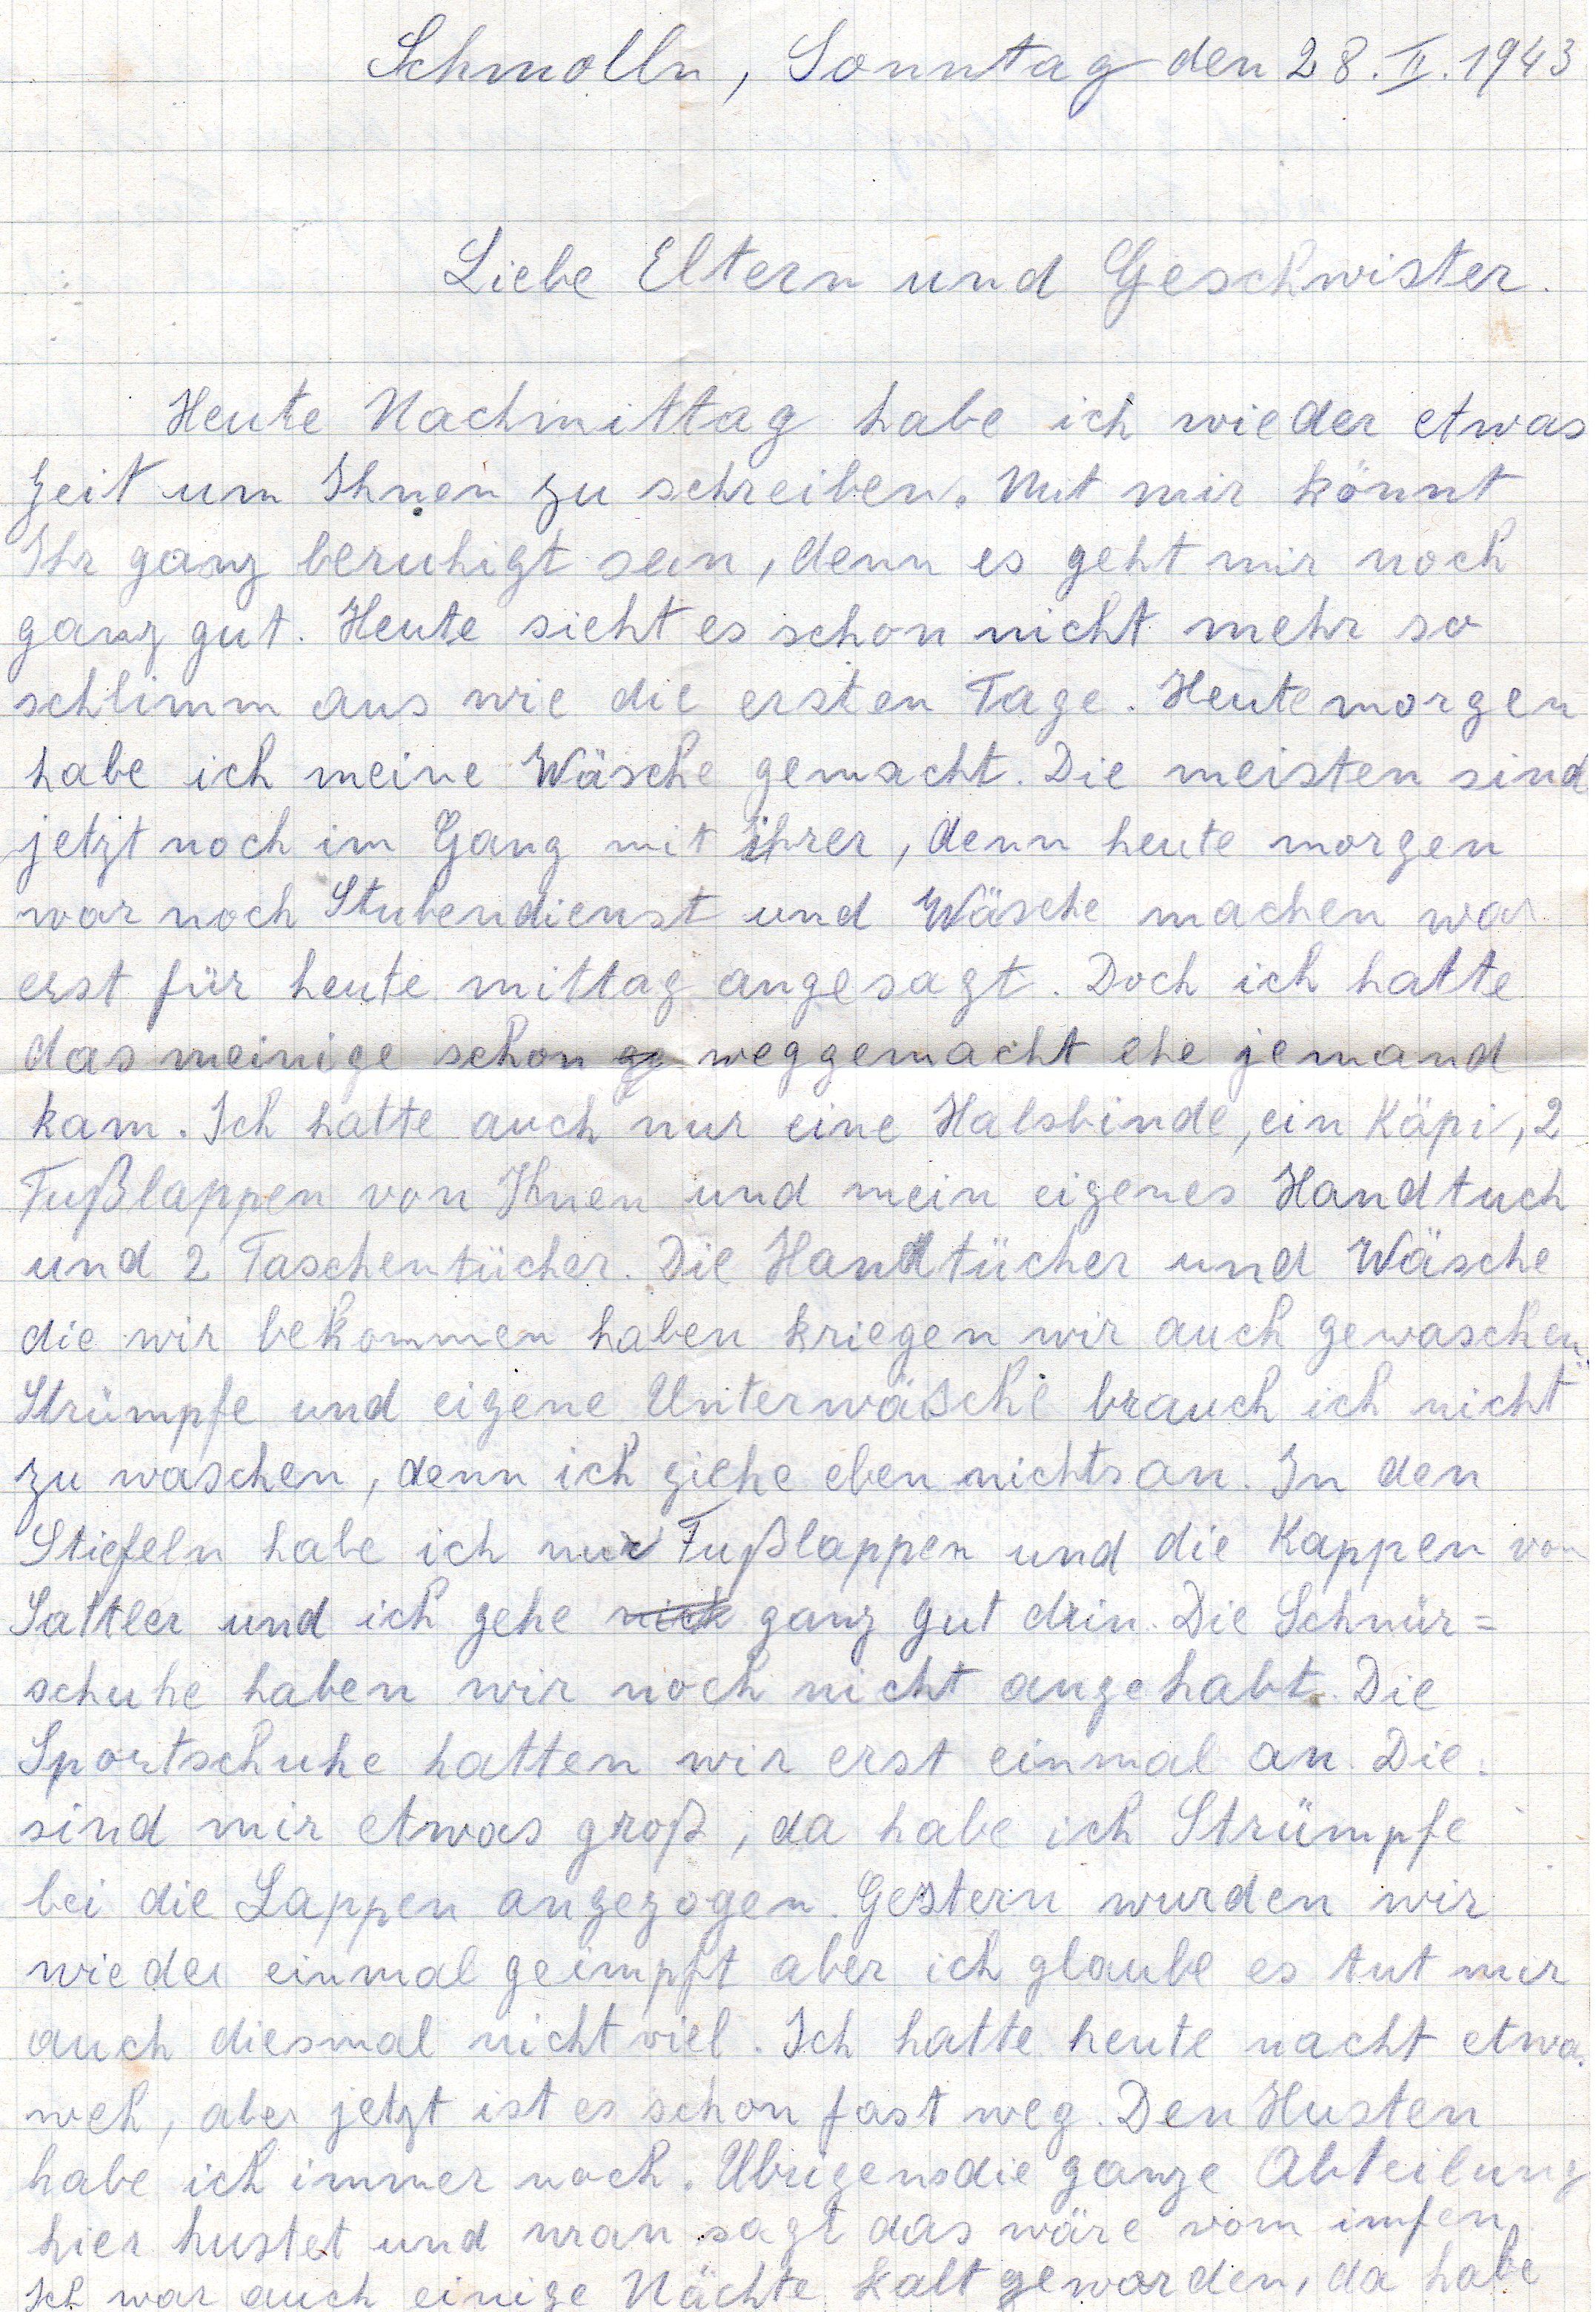 Schmolln, Sonntag den 28. II. 1943
Liebe Eltern und Geschwister.
Heute Nachmittag habe ich wieder etwas
Zeit um Ihnen zu schreiben. Mit mir könnt
Ihr ganz beruhigt sein, denn es geht mir noch
ganz gut. Heute sieht es schon nicht mehr so
schlimm aus wie die ersten Tage. Heute morgen
habe ich meine Wäsche gemacht. Die meisten sind
jetzt noch im Gang mit ihrer, denn heute morgen
war noch Stubendienst und Wäsche machen war
erst für heute mittag angesagt. Doch ich hatte
das meinige schon weggemacht ehe jemand
kam. Ich hatte auch nur eine Halsbinde, ein Käpi, 2
Fußlappen von Ihnen und mein eigenes Handtuch
und 2 Taschentücher. Die Handtücher und Wäsche
die wir bekommen haben kriegen wir auch gewaschen.
Strümpfe und eigene Unterwäsche brauch ich nicht
zu waschen, denn ich ziehe eben nichts an. In den
Stiefeln habe ich nur Fußlappen und die Kappen von
Sattler und ich gehe nich ganz gut drin. Die Schnür=
schuhe haben wir noch nicht angehabt. Die
Sportschuhe hatten wir erst einmal an. Die
sind mir etwas groß, da habe ich Strümpfe
bei die Lappen angezogen. Gestern wurden wir
wieder einmal geimpft aber ich glaube es tut mir
auch diesmal nicht viel. Ich hatte heute nacht etwa
weh, aber jetzt ist es schon fast weg. Den Husten
habe ich immer noch. Übrigens die ganze Abteilung
hier hustet und man sagt das wäre vom imfen.
Ich war auch einige Nächte kalt geworden, da habe